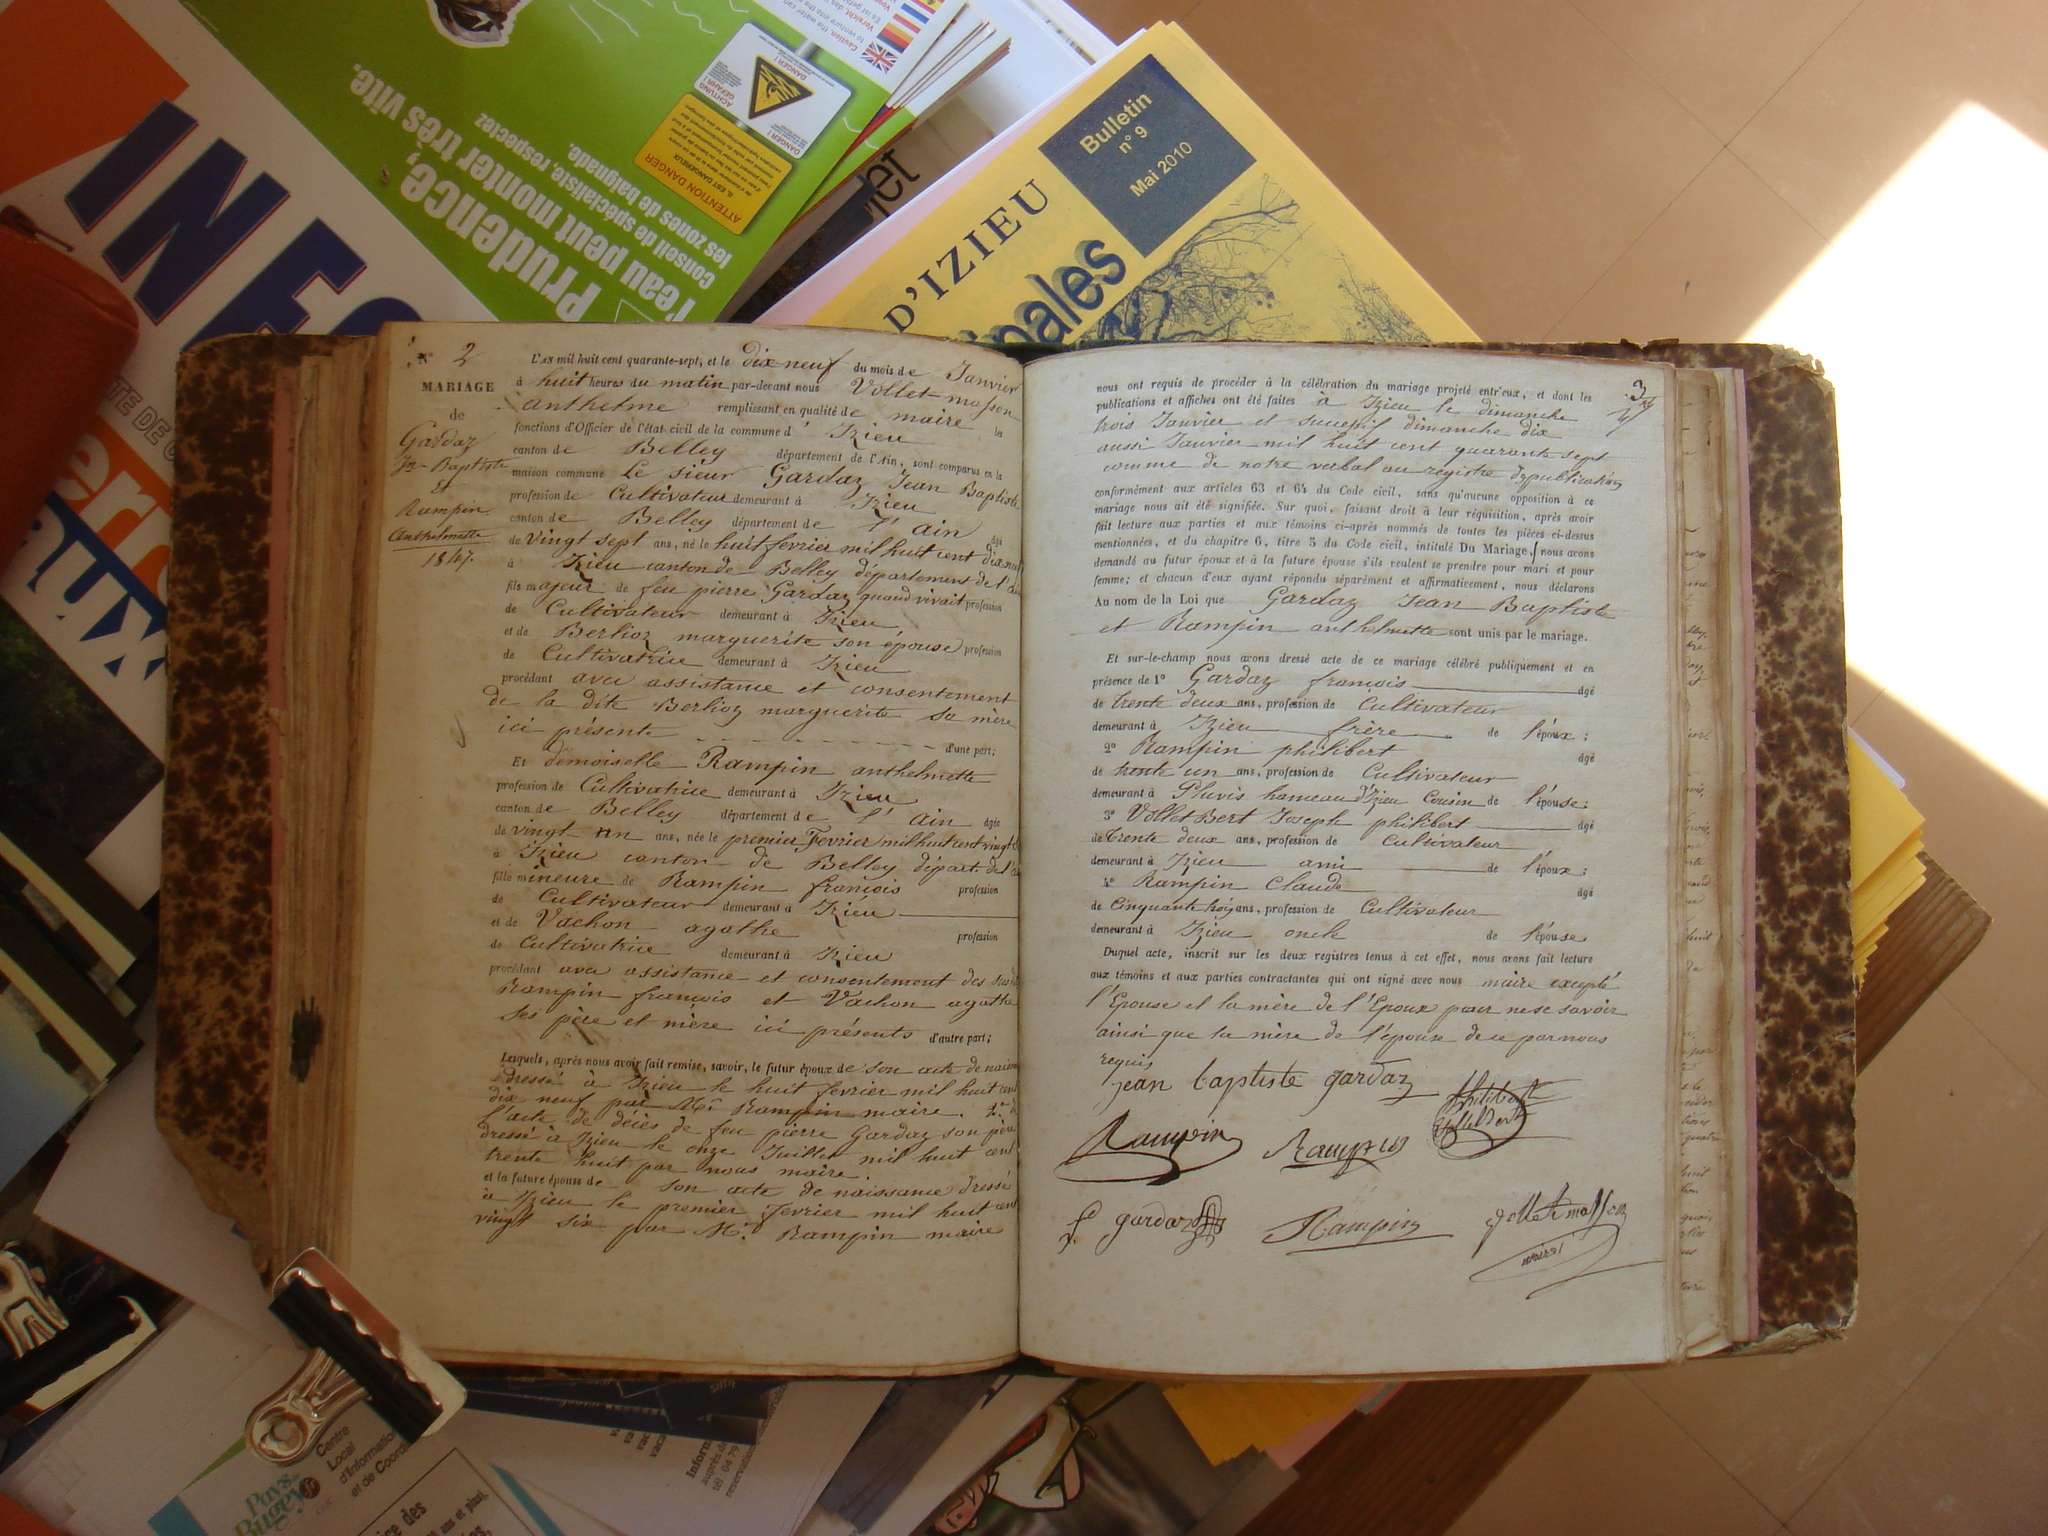 INFO
Prudence,
l'eau peut monter très vite.
conseil de spécialiste, respectez
les zones de baignade.
ATTENTION DANGER
DANGER !
ACHTUNG
GEFAHR
Bulletin
n° 9
Mai 2010
D'IZIEU
ipales
N° 2
MARIAGE
de
Gardaz
Jn-Baptiste
et
Rampin
Anthelmette
1847.
L'AN mil huit cent quarante-sept, et le dix neuf du mois de Janvier
à huit heures du matin par-devant nous Vollet-masson
anthelme remplissant en qualité de maire les
fonctions d'Officier de l'état-civil de la commune d' Izieu
canton de Belley département de l'Ain, sont comparus en la
maison commune Le sieur Gardaz Jean Baptiste
profession de Cultivateur demeurant à Izieu
canton de Belley département de l'ain âgé
de vingt sept ans, né le huit fevrier mil huit cent dix neuf
à Izieu canton de Belley département de l'ain
fils majeur de feu pierre Gardaz quand vivait profession
de Cultivateur demeurant à Izieu
et de Berlioz marguerite son épouse profession
de Cultivatrice demeurant à Izieu
procédant avec assistance et consentement
de la dite Berlioz marguerite sa mère
ici présente d'une part;
Et demoiselle Rampin anthelmette
profession de Cultivatrice demeurant à Izieu
canton de Belley département de l'ain âgée
de vingt un ans, née le premier Fevrier mil huit cent vingt
à Izieu canton de Belley départ. de l'ain
fille mineure de Rampin françois profession
de Cultivateur demeurant à Izieu
et de Vachon agathe profession
de Cultivatrice demeurant à Izieu
procédant avec assistance et consentement des
Rampin françois et Vachon agathe
ses père et mère ici présents d'autre part;
Lesquels, après nous avoir fait remise, savoir, le futur époux de son acte de naissance
dressé à Izieu le huit fevrier mil huit cent
dix neuf par Mr. Rampin maire. 2°. de
l'acte de décès de feu pierre Gardaz son père
dressé à Izieu le onze Juillet mil huit cent
trente huit par nous maire.
et la future épouse de son acte de naissance dressé
à Izieu le premier fevrier mil huit cent
vingt six par Mr. Rampin maire
3
nous ont requis de procéder à la célébration du mariage projeté entr'eux, et dont les
publications et affiches ont été faites à Izieu le dimanche
trois Janvier et successif dimanche dix
aussi Janvier mil huit cent quarante sept
comme de notre verbal au registre de publication
conformément aux articles 63 et 64 du Code civil, sans qu'aucune opposition à ce
mariage nous ait été signifiée. Sur quoi, faisant droit à leur réquisition, après avoir
fait lecture aux parties et aux témoins ci-après nommés de toutes les pièces ci-dessus
mentionnées, et du chapitre 6, titre 5 du Code civil, intitulé Du Mariage, nous avons
demandé au futur époux et à la future épouse s'ils veulent se prendre pour mari et pour
femme; et chacun d'eux ayant répondu séparément et affirmativement, nous déclarons
Au nom de la Loi que Gardaz Jean Baptiste
et Rampin anthelmette sont unis par le mariage.
Et sur-le-champ nous avons dressé acte de ce mariage célébré publiquement et en
présence de 1° Gardaz françois âgé
de trente deux ans, profession de Cultivateur
demeurant à Izieu frère de l'époux;
2° Rampin philibert âgé
de trente un ans, profession de Cultivateur
demeurant à Pluvis hameau d'Izieu Cousin de l'épouse;
3° Vollet Bert Joseph philibert âgé
de trente deux ans, profession de Cultivateur
demeurant à Izieu ami de l'époux;
4° Rampin Claude âgé
de Cinquante trois ans, profession de Cultivateur
demeurant à Izieu oncle de l'épouse
Duquel acte, inscrit sur les deux registres tenus à cet effet, nous avons fait lecture
aux témoins et aux parties contractantes qui ont signé avec nous maire excepté
l'Epouse et la mère de l'Epoux pour ne se savoir
ainsi que la mère de l'épouse de ce par nous
requis
jean baptiste gardaz
Rampin
Rampin
f gardaz
Rampin
Vollet masson
maire
Pays
Bugey
Centre
Local
d'Information
et de Coordi